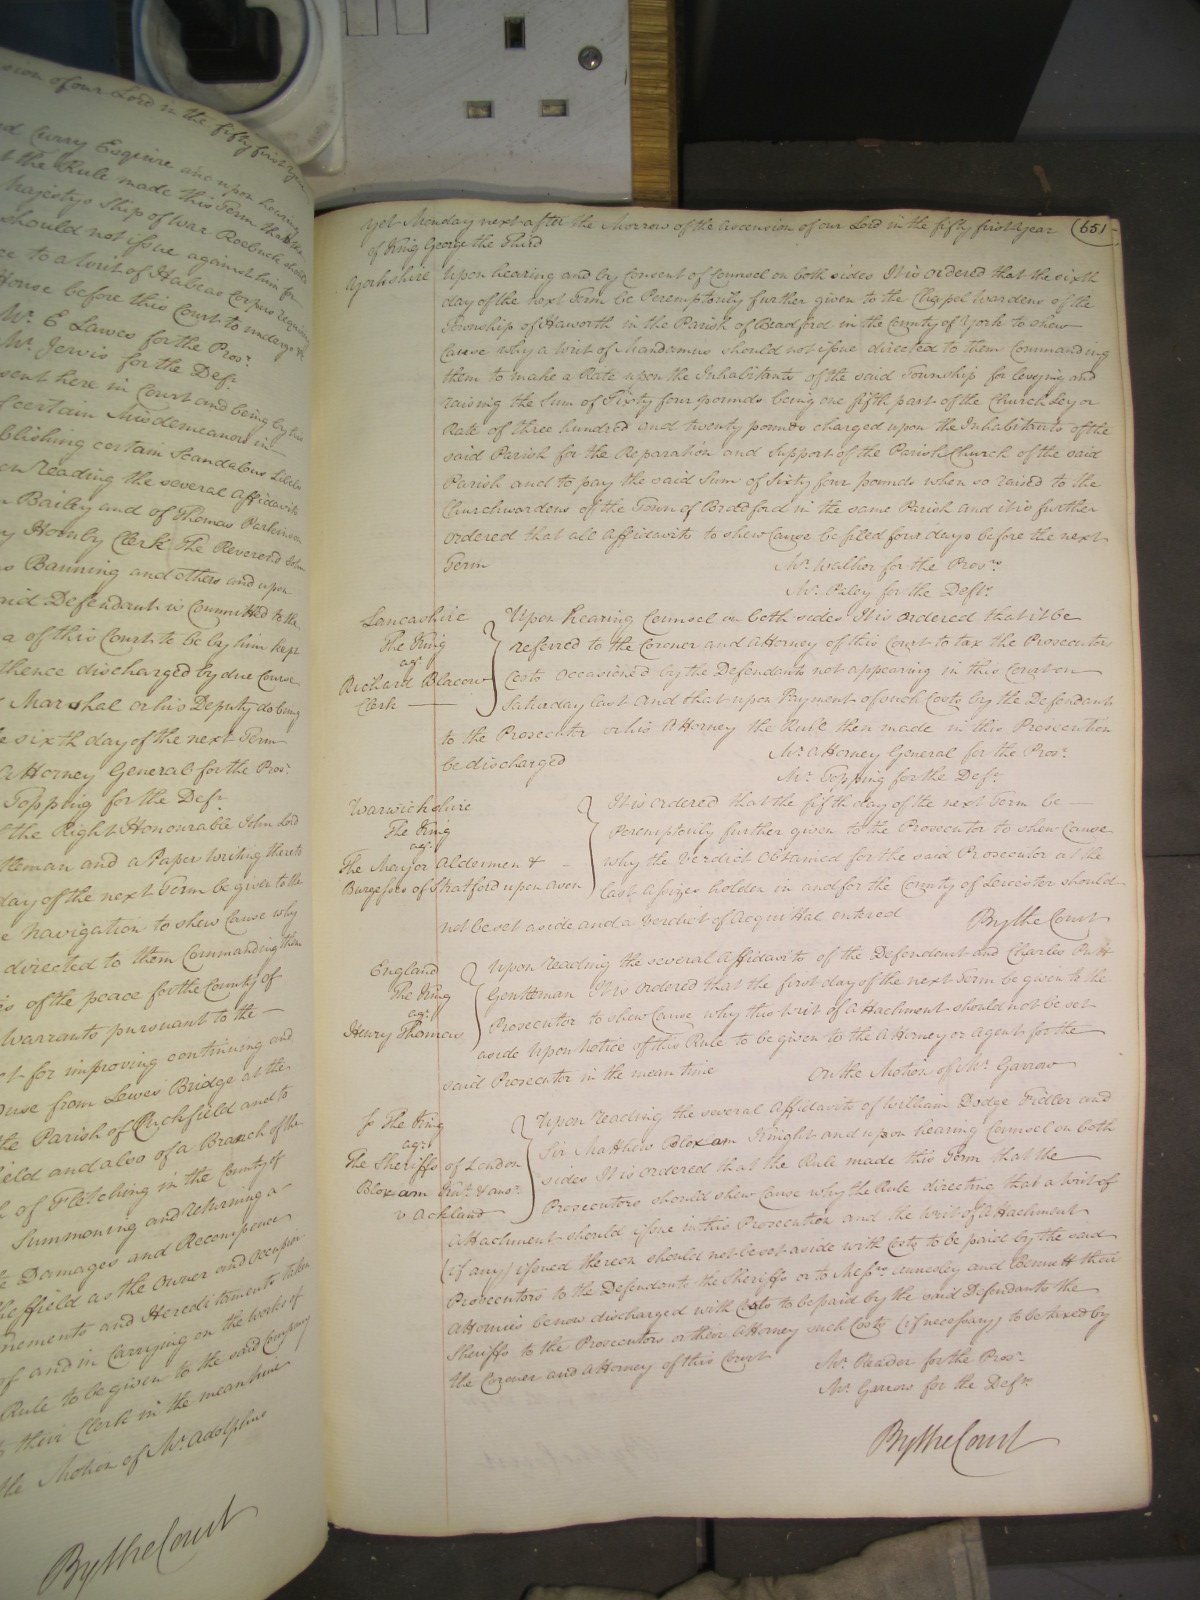 sion of our Lord in the fifty first year
nd Curry Esquire and upon hearing
t the Rule made this Term that the
Majestys Ship of War Roebuck should
should not issue against him for
ce to a Writ of Habeas Corpus requiring
House before this Court to undergo &
Mr. E Lawes for the Prosr.
Mr. Jervis for the Deft.
sent here in Court and being by his
f certain Misdemeanors in
blishing certain Scandalous Libels
on reading the several Affidavits
n Bailey and of Thomas Parkinson
y Hornby Clerk The Reverend John
s Banning and others and upon
aid Defendant is Committed to the
a of this Court to be by him kept
thence discharged by due Course
Marshal or his Deputy do bring
e sixth day of the next Term
Attorney General for the Prosr.
Topping for the Deft.
t the Right Honourable John Lord
tleman and a Paper Writing thereto
day of the next Term be given to the
e Navigation to shew Cause why
directed to them Commanding them
s of the peace for the County of
Warrants pursuant to the
ct for improving continuing and
ouse from Lewes Bridge at the
the Parish of and to
field and also of a Branch of the
h of Fletching in the County of
Summoning and returning a
te Damages and Recompence
ffield as the Owner and Occupier
nements and Hereditaments taken
of and in Carrying on the Works of
Rule to be given to the said Company
their Clerk in the mean time
the Motion of Mr. Adolphus
By the Court
Yet Monday next after the Morrow of the Ascension of our Lord in the fifty first year 651
of King George the Third
Yorkshire Upon hearing and by Consent of Counsel on both sides It is ordered that the sixth
day of the next Term be Peremptorily further given to the Chapel Wardens of the
Township of Haworth in the Parish of Bradford in the County of York to shew
Cause why a Writ of Mandamus should not issue directed to them Commanding
them to make a Rate upon the Inhabitants of the said Township for levying and
raising the Sum of Sixty four pounds being one fifth part of the Church Ley or
Rate of three hundred and twenty pounds charged upon the Inhabitants of the
said Parish for the Reparation and Support of the Parish Church of the said
Parish and to pay the said Sum of Sixty four pounds when so raised to the
Churchwardens of the Town of Bradford in the same Parish and it is further
ordered that all Affidavits to shew Cause be filed four days before the next
Term Mr. Walker for the Prosrs.
Mr. Paley for the Defts.
Lancashire Upon hearing Counsel on both sides It is ordered that it be
The King referred to the Coroner and Attorney of this Court to tax the Prosecutor
agt. Costs occasioned by the Defendants not appearing in this Court on
Richard Blacow Saturday last And that upon Payment of such Costs by the Defendant
Clerk
to the Prosecutor or his Attorney the Rule then made in this Prosecution
be discharged Mr. Attorney General for the Prosr.
Mr. Topping for the Deft.
Warwickshire It is ordered that the fifth day of the next Term be
The King Peremptorily further given to the Prosecutor to shew Cause
agt.
The Mayor Aldermen & why the Verdict Obtained for the said Prosecutor at the
Burgesses of Stratford upon Avon last Assizes holden in and for the County of Leicester should
not be set aside and a Verdict of Acquittal entered By the Court
England Upon reading the several Affidavits of the Defendant and Charles Pratt
The King Gentleman It is ordered that the first day of the next Term be given to the
agt.
Henry Thomas Prosecutor to shew Cause why this Writ of Attachment should not be set
aside Upon Notice of this Rule to be given to the Attorney or Agent for the
said Prosecutor in the mean time On the Motion of Mr. Garrow
The King Upon reading the several Affidavits of William Dodge Fidler and
agt. Sir Matthew Bloxam Knight and upon hearing Counsel on both
The Sheriffs of London sides It is ordered that the Rule made this Term that the
Bloxam Knt. & anr. Prosecutors should shew Cause why the Rule directing that a Writ of
v Ackland
Attachment should issue in this Prosecution and the Writ of Attachment
(if any) issued thereon should not be set aside with Costs to be paid by the said
Prosecutors to the Defendants the Sheriffs or to Messrs. Annesley and Bennett their
Attornies be now discharged with Costs to be paid by the said Defendants the
Sheriffs to the Prosecutors or their Attorney such Costs (if necessary) to be taxed by
the Coroner and Attorney of this Court Mr. Reader for the Prosr.
Mr. Garrow for the Defts.
By the Court